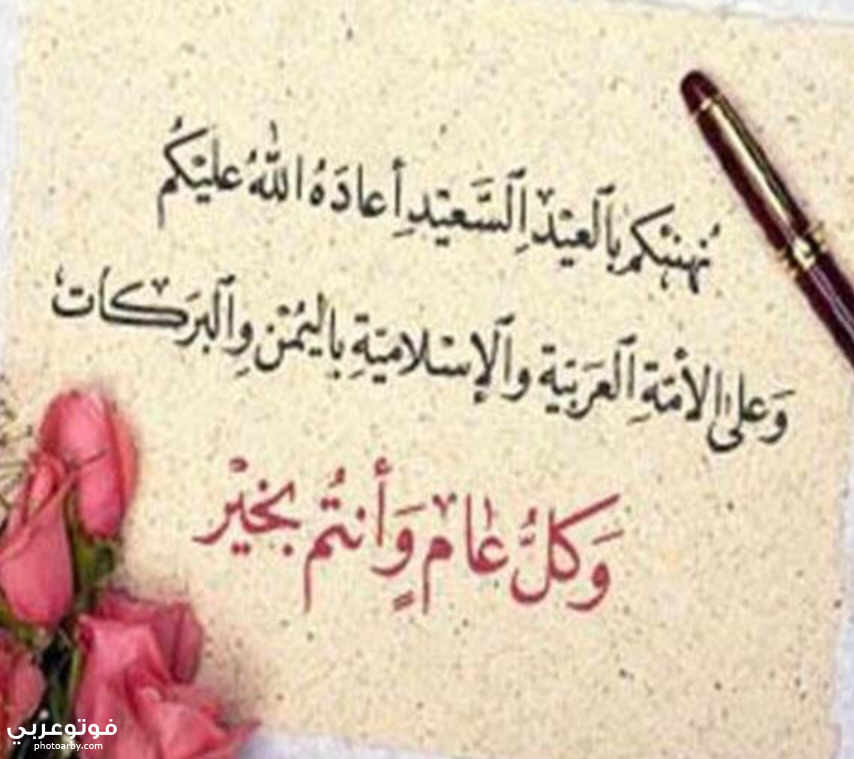 نُهنئكم بالعيْد السَّعيْدِ أعادَهُ اللهُ عليْكُم
وَعلى الأمّةِ العَرَبيّة والإسْلاميّةِ باليُمْن والبَركات
وَكلُّ عَام وَأنتُم بخيْر
فوتوعربي
photoarby.com